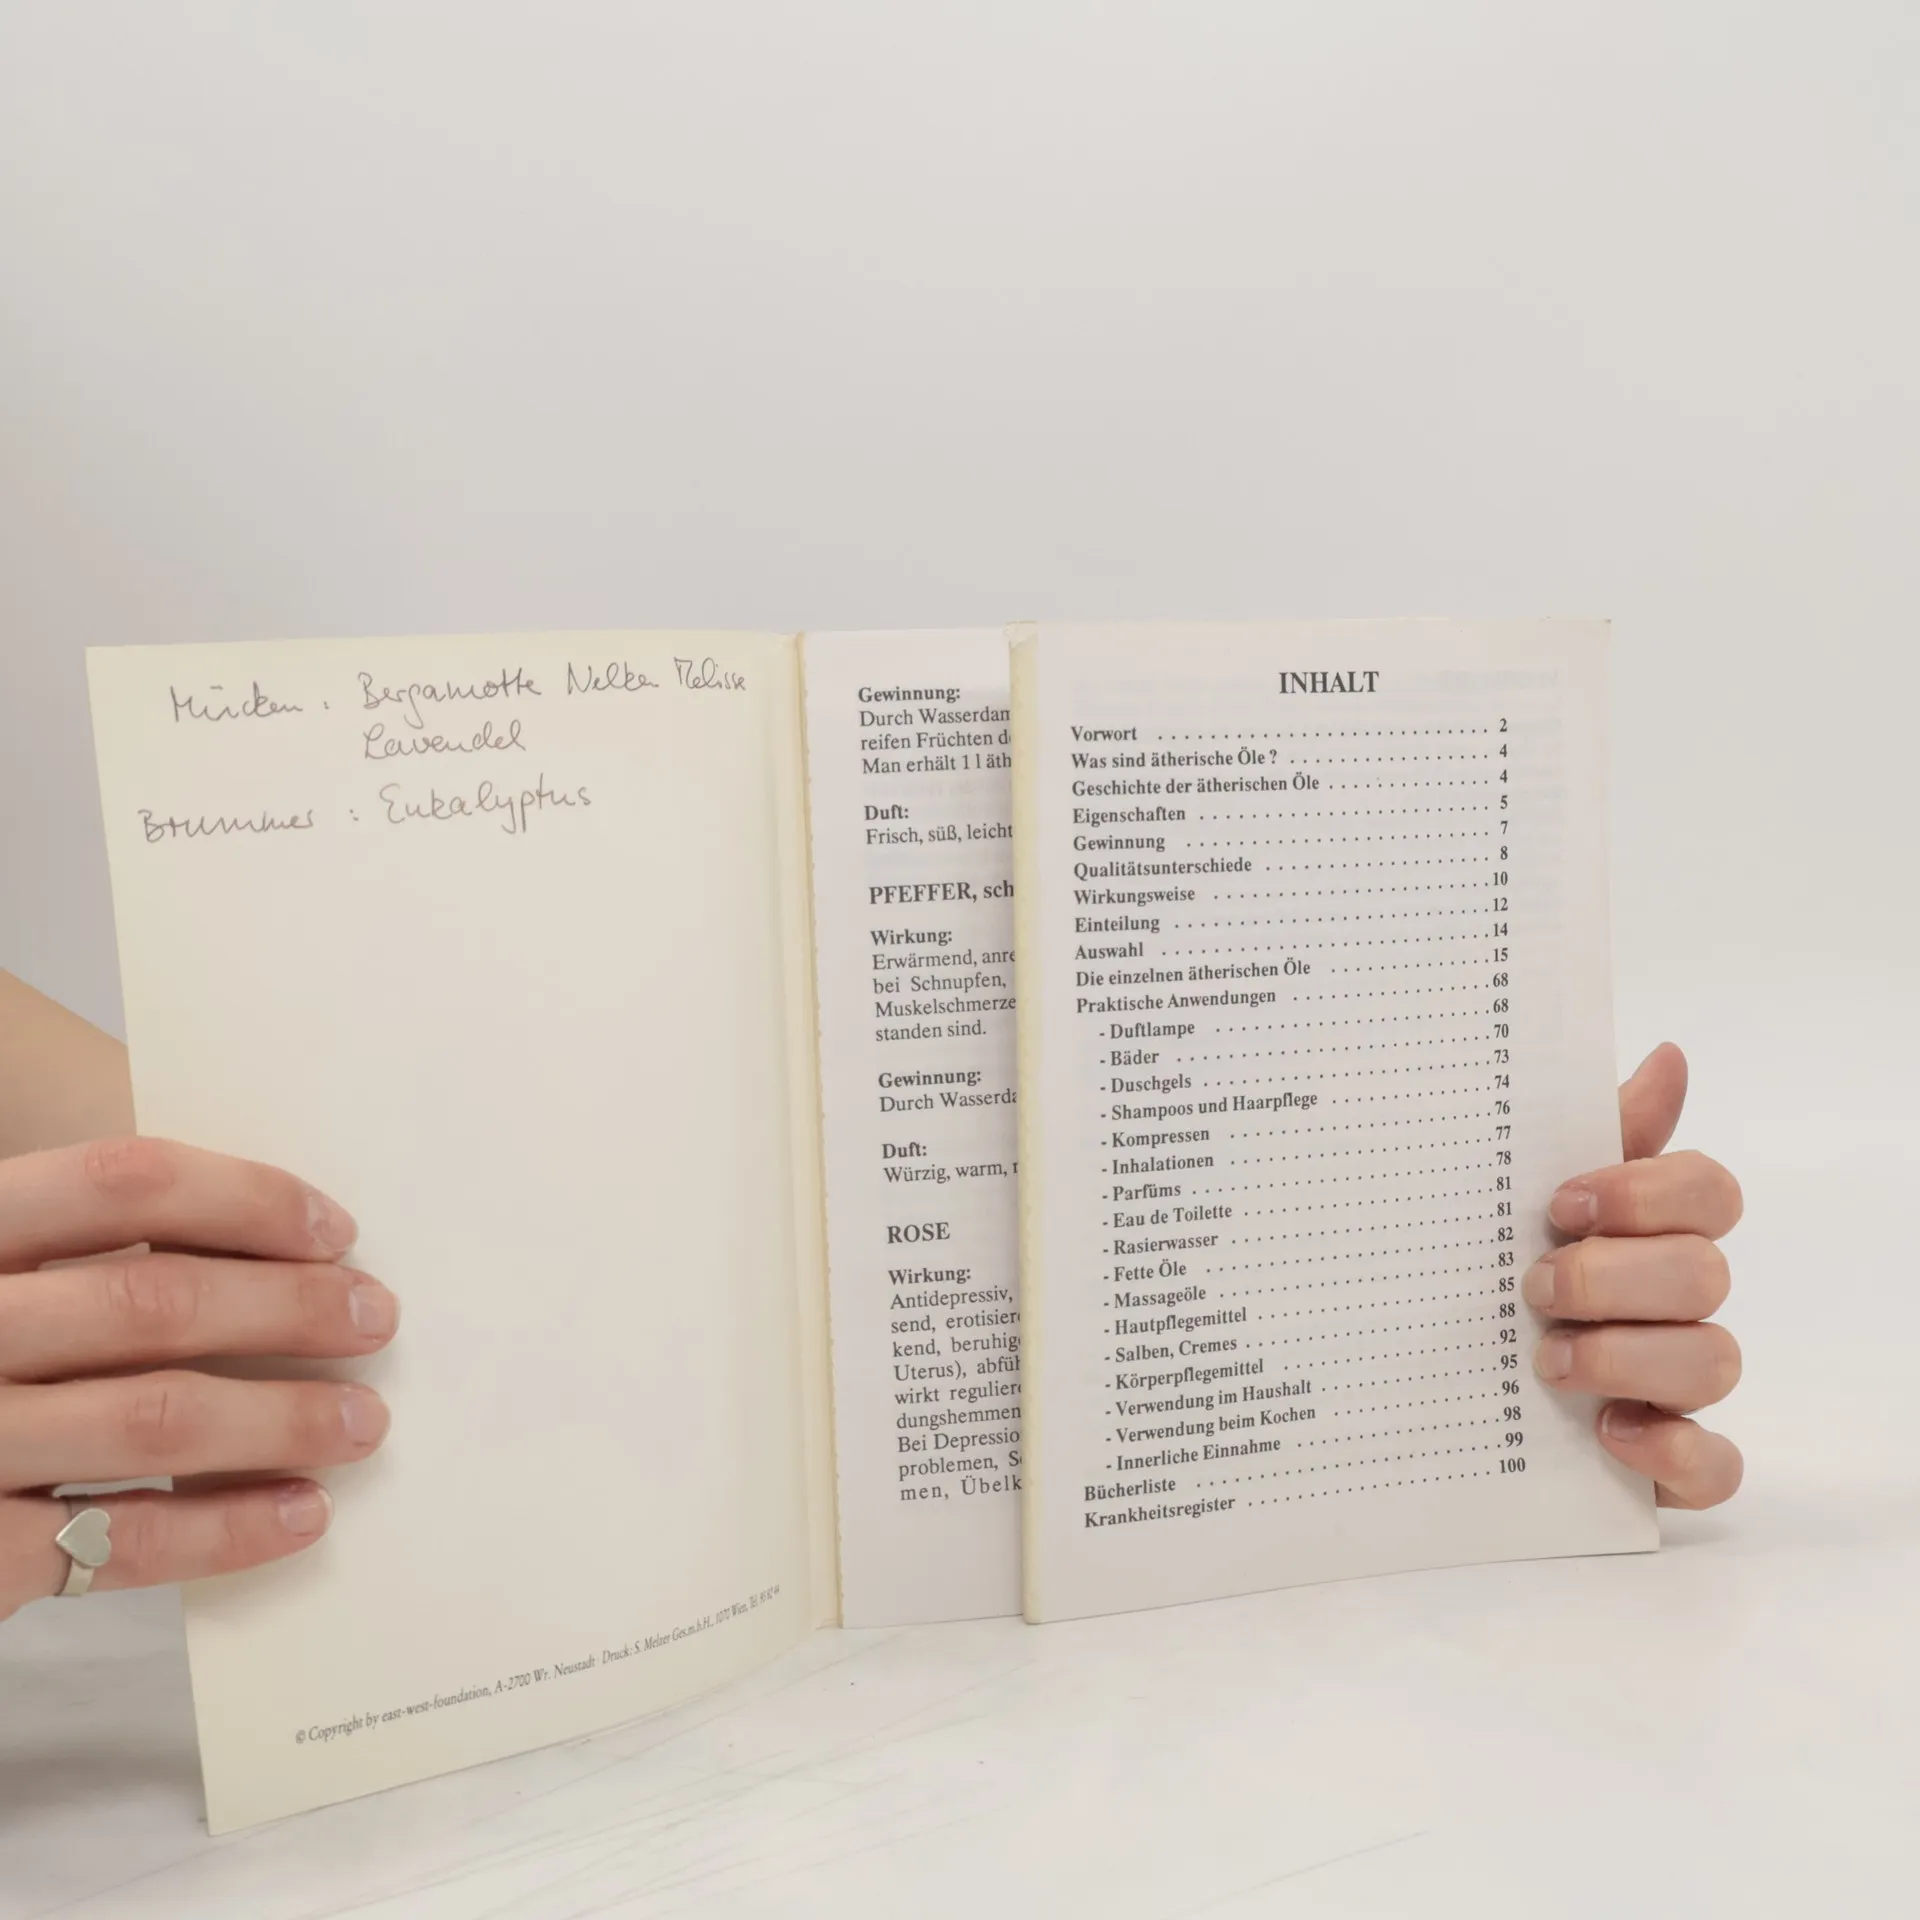 Mücken : Bergamotte Nelken Melisse
Lavendel
Brummer : Eukalyptus
© Copyright by east-west-foundation, A-2700 Wr. Neustadt · Druck: S. Melzer Ges.m.b.H., 1070 Wien, Tel.
Gewinnung:
Durch Wasserdam
reifen Früchten d
Man erhält 1 l äth
Duft:
Frisch, süß, leicht
PFEFFER, sch
Wirkung:
Erwärmend, anre
bei Schnupfen,
Muskelschmerze
standen sind.
Gewinnung:
Durch Wasserda
Duft:
Würzig, warm, r
ROSE
Wirkung:
Antidepressiv,
send, erotisier
kend, beruhig
Uterus), abfüh
wirkt regulier
dungshemmen
Bei Depressio
problemen, S
men, Übelk
INHALT
Vorwort . . . . . . . . . . . . . . . . . . . . . . . . . . . 2
Was sind ätherische Öle ? . . . . . . . . . . . . . . . . . 4
Geschichte der ätherischen Öle . . . . . . . . . . . . . 4
Eigenschaften . . . . . . . . . . . . . . . . . . . . . . . . 5
Gewinnung . . . . . . . . . . . . . . . . . . . . . . . . . 7
Qualitätsunterschiede . . . . . . . . . . . . . . . . . . . 8
Wirkungsweise . . . . . . . . . . . . . . . . . . . . . . .10
Einteilung . . . . . . . . . . . . . . . . . . . . . . . . . .12
Auswahl . . . . . . . . . . . . . . . . . . . . . . . . . . .14
Die einzelnen ätherischen Öle . . . . . . . . . . . . .15
Praktische Anwendungen . . . . . . . . . . . . . . . .68
- Duftlampe . . . . . . . . . . . . . . . . . . . . . . .68
- Bäder . . . . . . . . . . . . . . . . . . . . . . . . . .70
- Duschgels . . . . . . . . . . . . . . . . . . . . . . . .73
- Shampoos und Haarpflege . . . . . . . . . . . . .74
- Kompressen . . . . . . . . . . . . . . . . . . . . . .76
- Inhalationen . . . . . . . . . . . . . . . . . . . . . .77
- Parfüms . . . . . . . . . . . . . . . . . . . . . . . . .78
- Eau de Toilette . . . . . . . . . . . . . . . . . . . .81
- Rasierwasser . . . . . . . . . . . . . . . . . . . . . .81
- Fette Öle . . . . . . . . . . . . . . . . . . . . . . . .82
- Massageöle . . . . . . . . . . . . . . . . . . . . . . .83
- Hautpflegemittel . . . . . . . . . . . . . . . . . . .85
- Salben, Cremes . . . . . . . . . . . . . . . . . . . .88
- Körperpflegemittel . . . . . . . . . . . . . . . . . .92
- Verwendung im Haushalt . . . . . . . . . . . . . .95
- Verwendung beim Kochen . . . . . . . . . . . . .96
- Innerliche Einnahme . . . . . . . . . . . . . . . . .98
Bücherliste . . . . . . . . . . . . . . . . . . . . . . . . .99
Krankheitsregister . . . . . . . . . . . . . . . . . . . . 100